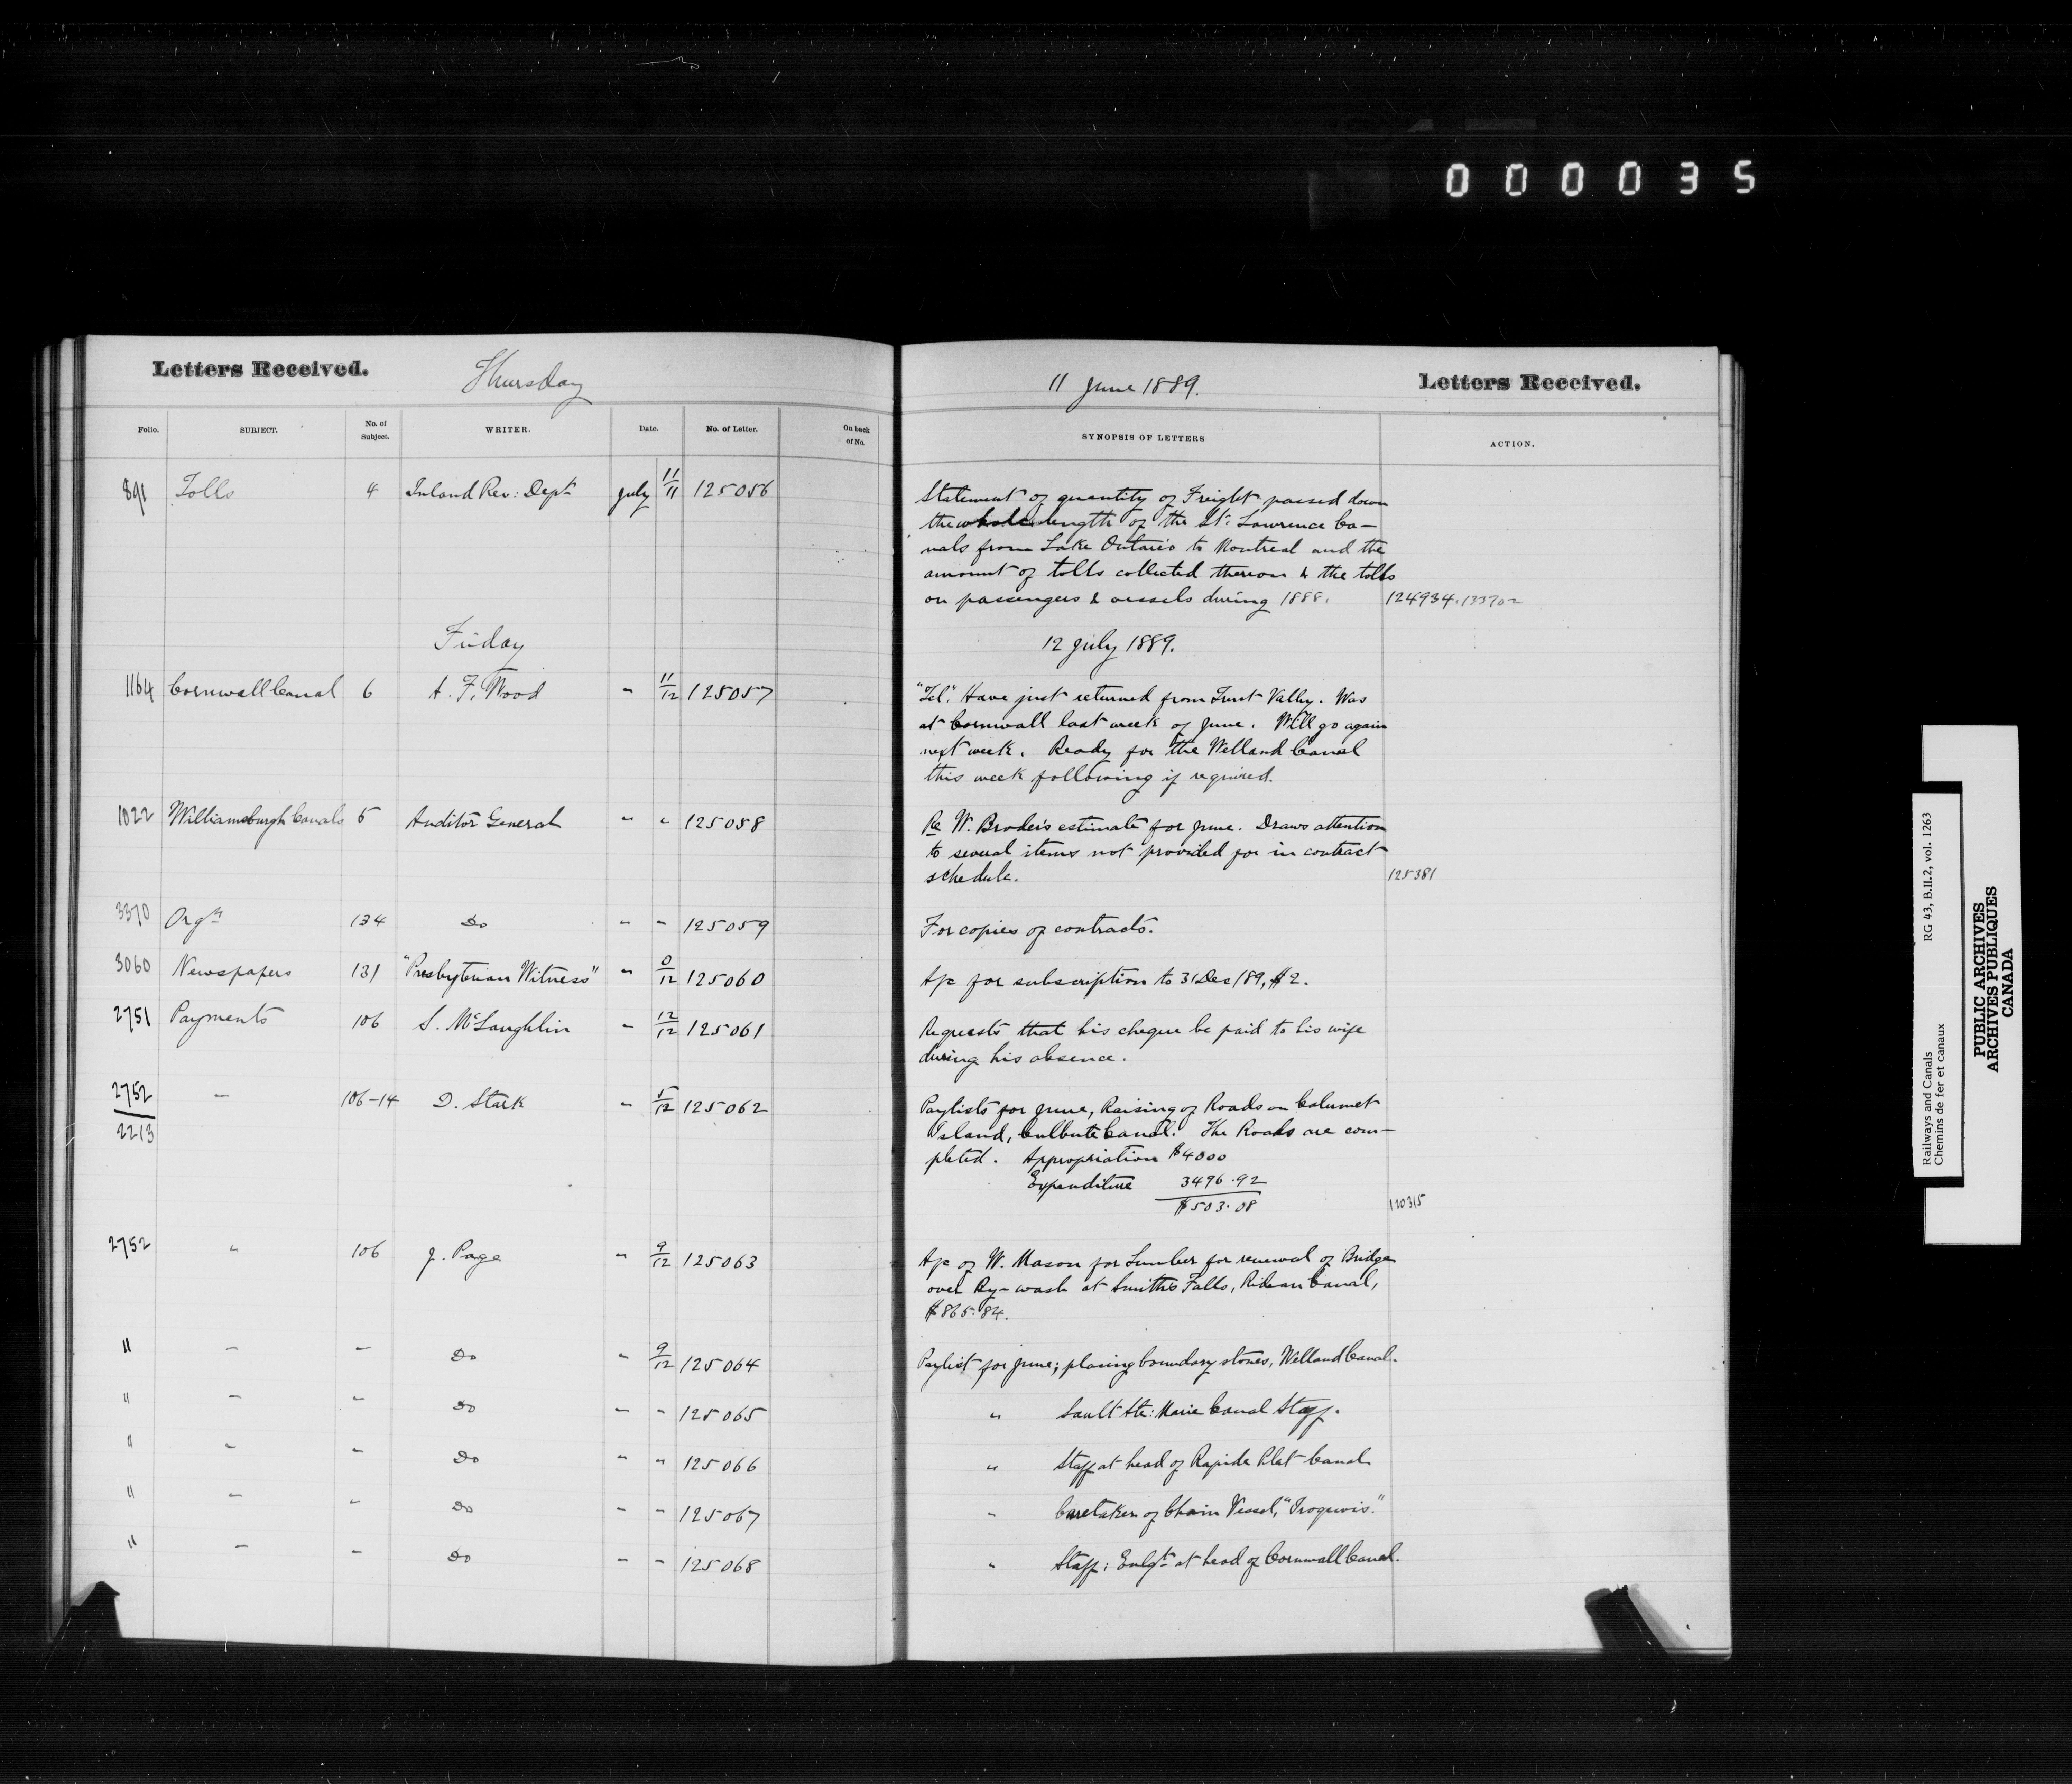 0 0 0 0 3 5
Letters Received. Thursday 11 June 1889. Letters Received.
Folio. SUBJECT. No. of Subject. WRITER. Date. No. of Letter. On back of No. SYNOPSIS OF LETTERS ACTION.
891 Tolls 4 Inland Rev: Dept July 11/11 125056 Statement of quantity of Freight passed down
the whole length of the St. Lawrence Ca-
nals from Lake Ontario to Montreal and the
amount of tolls collected thereon & the tolls
on passengers & vessels during 1888. 124934.
Friday 12 July 1889.
1164 Cornwall Canal 6 A. F. Wood " 11/12 125057 "Tel". Have just returned from Trent Valley. Was
at Cornwall last week of June. Will go again
next week. Ready for the Welland Canal
this week following if required.
1022 Williamsburgh Canals 5 Auditor General " " 125058 Re W. Broder's estimate for June. Draws attention
to several items not provided for in contract
schedule. 125381
3370 Orgn 134 Do " " 125059 For copies of contracts.
3060 Newspapers 131 "Presbyterian Witness" " 0/12 125060 A/c for subscription to 31 Dec /89, $2.
2751 Payments 106 S. McLaughlin " 12/12 125061 Requests that his cheque be paid to his wife
during his absence.
2752 " 106-14 D. Stark " 5/12 125062 Paylists for June, Raising of Roads on Calumet
2213 Island, Culbute Canal. The Roads are com-
pleted. Appropriation $4000
Expenditure 3496.92
$503.08 120315
2752 " 106 J. Page " 9/12 125063 A/c of W. Mason for Lumber for renewal of Bridge
over By-wash at Smith's Falls, Rideau Canal,
$865.84.
" " " Do " 9/12 125064 Paylist for June; placing boundary stones, Welland Canal.
" " " Do " " 125065 " Sault Ste: Marie Canal Staff.
" " " Do " " 125066 " Staff at head of Rapide Plat Canal.
" " " Do " " 125067 " Caretaker of Chain Vessel, "Iroquois."
" " " Do " " 125068 " Staff: Enlgt at head of Cornwall Canal.
Railways and Canals RG 43, B.II.2, vol. 1263
Chemins de fer et canaux
PUBLIC ARCHIVES
ARCHIVES PUBLIQUES
CANADA